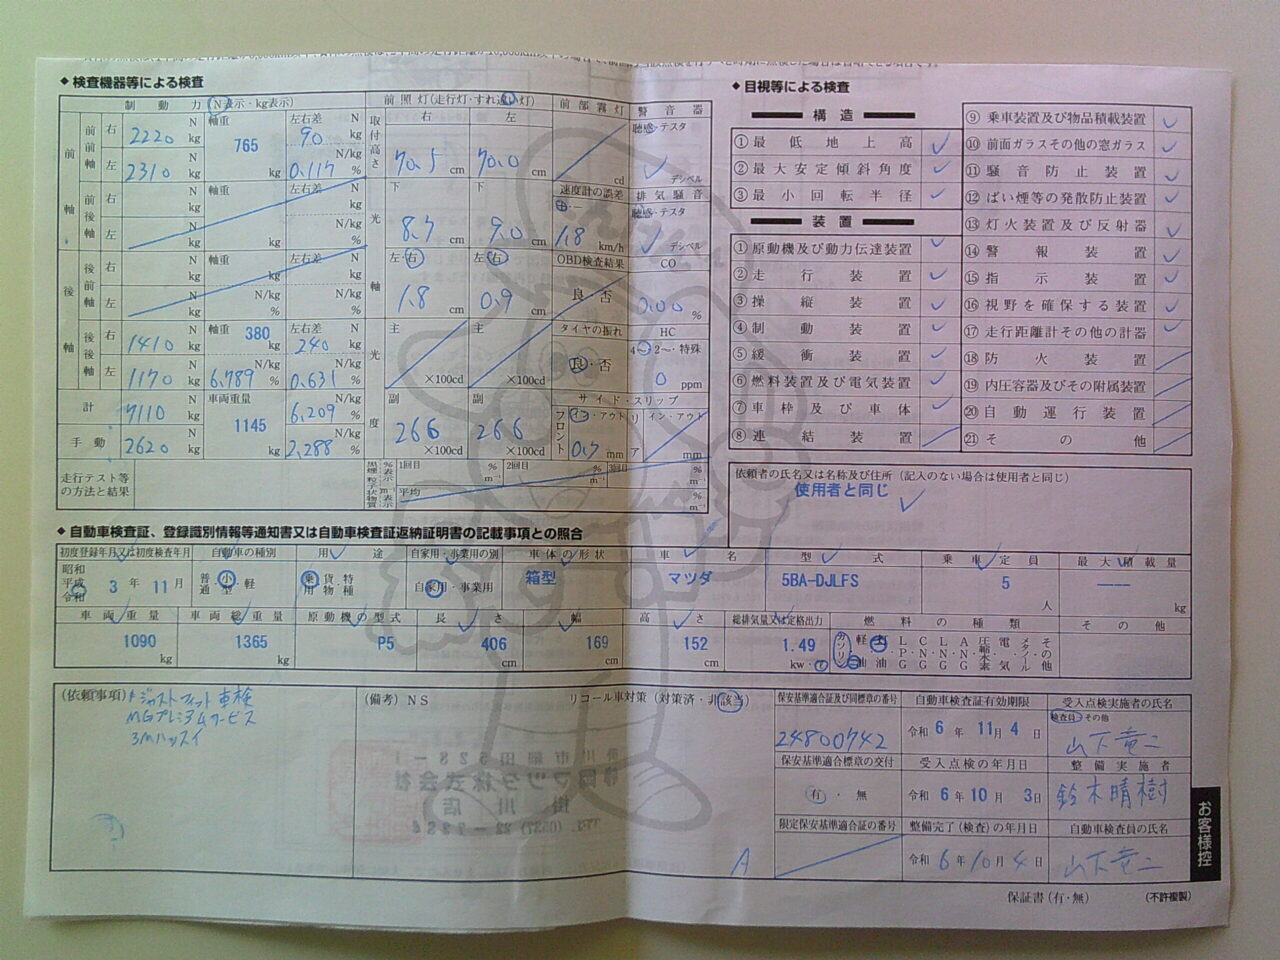 ◆検査機器等による検査
制動力(N表示・kg表示)
前照灯(走行灯・すれ違い灯)
前部霧灯
警音器
前軸 前前軸 右 2220 N kg
軸重 765 kg
左右差 90 N kg
左 2310 N kg
0.117 N/kg %
取付高さ 右 70.5 cm 左 70.0 cm
cd
聴感・テスタ
デシベル
前後軸 右 N kg 軸重 kg 左右差 N kg
左 N kg N/kg %
光軸 下 8.7 cm 下 9.0 cm
速度計の誤差
+・- 1.8 km/h
排気騒音
聴感・テスタ
デシベル
後軸 後前軸 右 左 軸重 左右差 N kg
N/kg %
左・右 1.8 cm 左・右 0.9 cm
OBD検査結果
良・否
CO
0.00 %
後後軸 右 1410 N kg
軸重 380 kg
左右差 240 N kg
左 1170 N kg
6.789 N/kg %
0.631 N/kg %
光度 主 ×100cd 主 ×100cd
タイヤの振れ
良・否
HC
4・2・特殊
0 ppm
計 7110 N kg
車両重量 1145 kg
6.209 N/kg %
手動 2620 N kg
2.288 N/kg %
副 266 ×100cd 副 266 ×100cd
サイド・スリップ
フロント イン・アウト 0.7 mm
リア イン・アウト mm
走行テスト等の方法と結果
1回目 % m⁻¹ 2回目 % m⁻¹ 3回目 % m⁻¹
平均 % m⁻¹
◆目視等による検査
構造
①最低地上高
②最大安定傾斜角度
③最小回転半径
装置
①原動機及び動力伝達装置
②走行装置
③操縦装置
④制動装置
⑤緩衝装置
⑥燃料装置及び電気装置
⑦車枠及び車体
⑧連結装置
⑨乗車装置及び物品積載装置
⑩前面ガラスその他の窓ガラス
⑪騒音防止装置
⑫ばい煙等の発散防止装置
⑬灯火装置及び反射器
⑭警報装置
⑮指示装置
⑯視野を確保する装置
⑰走行距離計その他の計器
⑱防火装置
⑲内圧容器及びその附属装置
⑳自動運行装置
㉑その他
依頼者の氏名又は名称及び住所(記入のない場合は使用者と同じ)
使用者と同じ
◆自動車検査証、登録識別情報等通知書又は自動車検査証返納証明書の記載事項との照合
初度登録年月又は初度検査年月
昭和 平成 令和 3年 11月
自動車の種別
普通 小型 軽
用途
乗用 貨物 特種
自家用・事業用の別
自家用・事業用
車体の形状
箱型
車名
マツダ
型式
5BA-DJLFS
乗車定員
5 人
最大積載量
kg
車両重量
1090 kg
車両総重量
1365 kg
原動機の型式
P5
長さ
406 cm
幅
169 cm
高さ
152 cm
総排気量又は定格出力
1.49 kw・ℓ
燃料の種類
ガソリン 軽油 LPG CNG LNG ANG 圧縮水素 電気 メタノール その他
その他
(依頼事項)
ジャストフィット車検
MGプレミアムサービス
3Mハッスイ
(備考)NS
リコール車対策(対策済・非該当)
A
保安基準適合証及び同標章の番号
24800742
保安基準適合標章の交付
有・無
限定保安基準適合証の番号
自動車検査証有効期限
令和 6年 11月 4日
受入点検の年月日
令和 6年 10月 3日
整備完了(検査)の年月日
令和 6年 10月 4日
受入点検実施者の氏名
検査員・その他
山下竜二
整備実施者
鈴木晴樹
自動車検査員の氏名
山下竜二
お客様控
保証書(有・無)
(不許複製)